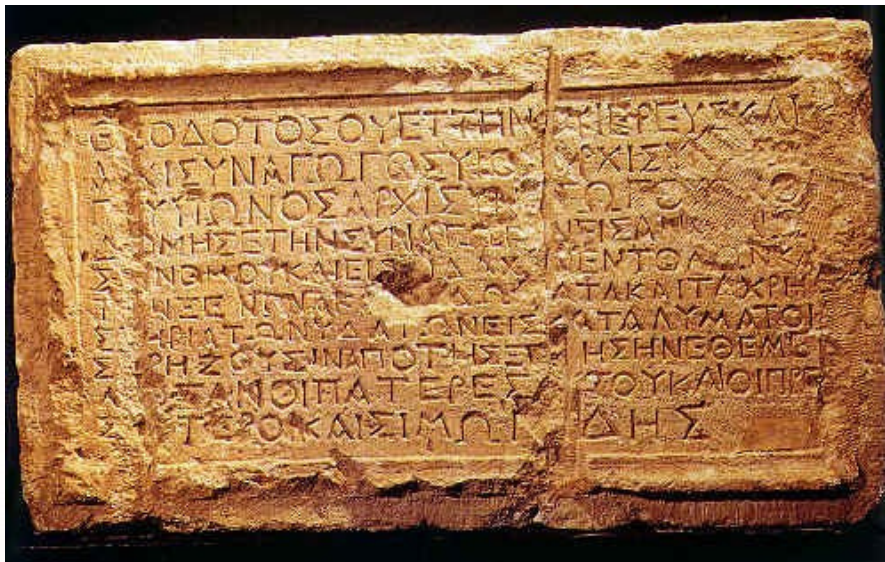 ΘΕΟΔΟΤΟΣ ΟΥΕΤΤΗΝΟΥ ΙΕΡΕΥΣ ΚΑΙ
ΑΡΧΙΣΥΝΑΓΩΓΟΣ ΥΙΟΣ ΑΡΧΙΣΥΝ
ΥΙΩΝΟΣ ΑΡΧΙΣΥΝΑΓΩΓΟΥ
ΔΟΜΗΣΕ ΤΗΝ ΣΥΝΑΓΩΓΗΝ ΕΙΣ ΑΝ
ΝΟΜΟΥ ΚΑΙ ΕΙΣ ΔΙΔΑΧΗΝ ΕΝΤΟΛΩΝ ΚΑΙ
ΤΟΝ ΞΕΝΩΝΑ ΚΑΙ ΤΑ ΔΩΜΑΤΑ ΚΑΙ ΤΑ ΧΡΗ
ΣΤΗΡΙΑ ΤΩΝ ΥΔΑΤΩΝ ΕΙΣ ΚΑΤΑΛΥΜΑ ΤΟΙ
Σ ΧΡΗΖΟΥΣΙΝ ΑΠΟ ΤΗΣ ΞΕΝΗΣ ΗΝ ΕΘΕΜΕ
ΛΙΩΣΑΝ ΟΙ ΠΑΤΕΡΕΣ ΑΥΤΟΥ ΚΑΙ ΟΙ ΠΡΕ
ΣΒΥΤΕΡΟΙ ΚΑΙ ΣΙΜΩΝΙΔΗΣ